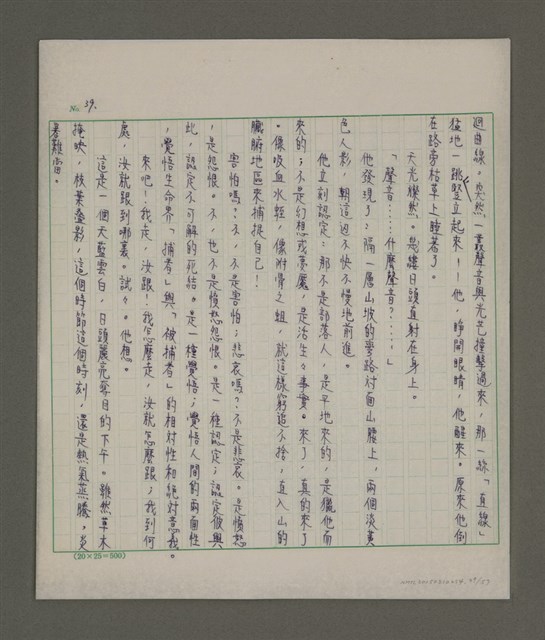 No. 39.
迴曲線。突然一叢聲音與光芒撞擊過來,那一絲「直線」
猛地一跳豎立起來!!他,睜開眼睛,他醒來。原來他倒
在路旁枯草上睡著了。
天光爍然。是縷日頭直射在身上。
「聲音……什麼聲音?……」
他發現了;隔一層山坡的彎路對面山腰上,兩個淡黃
色人影,朝這邊不快不慢地前進。
他立刻認定:那不是部落人,是平地來的,是獵他而
來的;不是幻想或夢魘,是活生々事實。來了,真的來了
。像吸血水蛭,像附骨之蛆,就這樣窮追不捨,直入山的
臟腑地區來捕捉自己!
害怕嗎?不,不是害怕;悲哀嗎?不是悲哀。是憤怒
,是怨恨。不,也不是憤怒怨恨。是一種認定;認定彼與
此,認定不可解的死結。是一種覺悟;覺悟人間的兩面性
,覺悟生命界「捕者」與「被捕者」的相對性和絕對意義。
來吧!我走,汝跟!我怎麼走,汝就怎麼跟;我到何
處,汝就跟到哪裏。試々。他想。
這是一個天藍雲白,日頭麗亮奪目的下午。雖然草木
掩映,枝葉疊影,這個時節這個時刻,還是熱氣蒸騰,炎
暑難當。
(20×25=500)